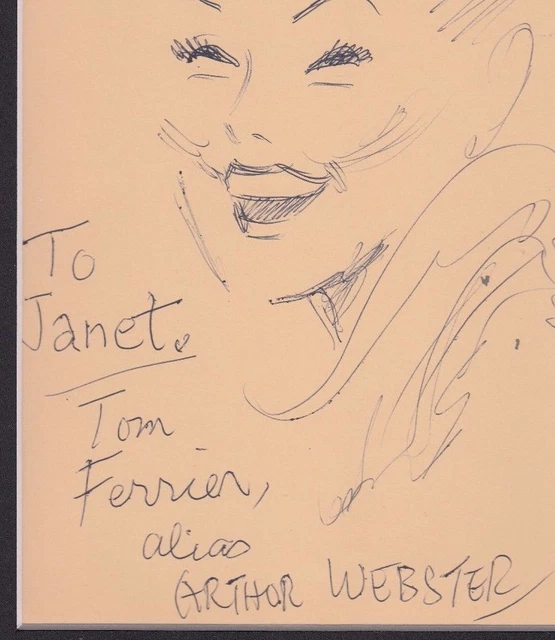 To
Janet.
Tom
Ferrier,
alias
ARTHUR WEBSTER